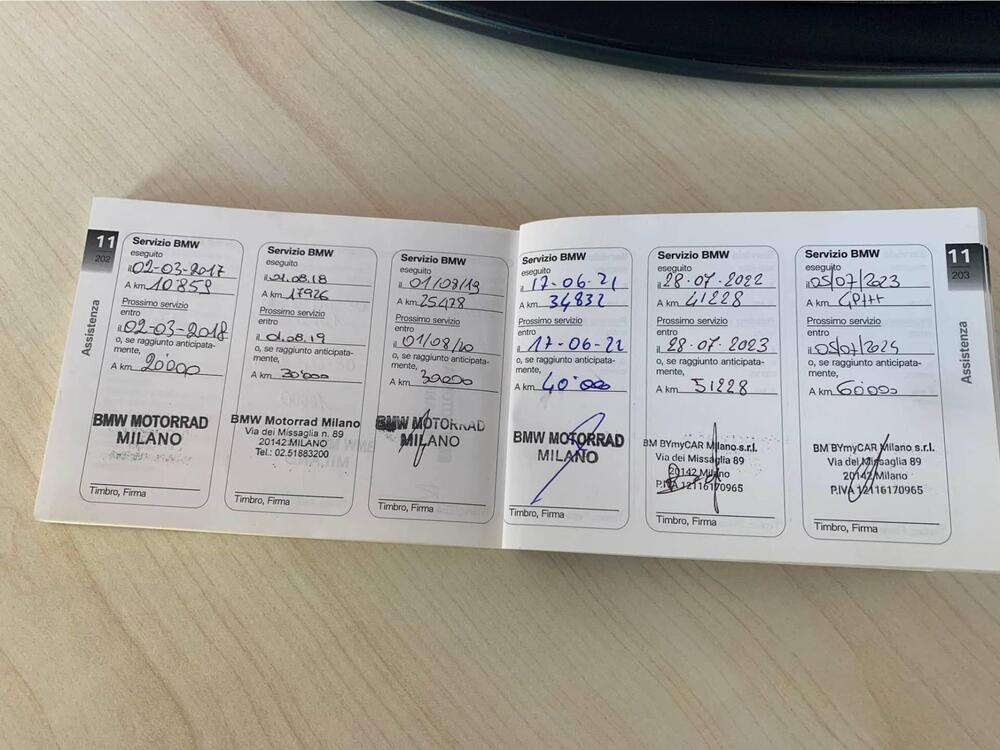 11
202
Assistenza
Servizio BMW
eseguito
il 02-03-2017
A km 10859
Prossimo servizio
entro
il 02-03-2018
o, se raggiunto anticipata-
mente,
A km 20'000
BMW MOTORRAD
MILANO
Timbro, Firma
Servizio BMW
eseguito
il 01.08.18
A km 17926
Prossimo servizio
entro
il 01.08.19
o, se raggiunto anticipata-
mente,
A km 30'000
BMW Motorrad Milano
Via dei Missaglia n. 89
20142 MILANO
Tel.: 02.51883200
Timbro, Firma
Servizio BMW
eseguito
il 01/08/19
A km 25428
Prossimo servizio
entro
il 01/08/20
o, se raggiunto anticipata-
mente,
A km 30000
BMW MOTORRAD
MILANO
Timbro, Firma
Servizio BMW
eseguito
il 17-06-21
A km 34832
Prossimo servizio
entro
il 17-06-22
o, se raggiunto anticipata-
mente,
A km 40'000
BMW MOTORRAD
MILANO
Timbro, Firma
Servizio BMW
eseguito
il 28.07.2022
A km 41228
Prossimo servizio
entro
il 28.07.2023
o, se raggiunto anticipata-
mente,
A km 51228
BM BYmyCAR Milano s.r.l.
Via dei Missaglia 89
20142 Milano
P.IVA 12116170965
Timbro, Firma
Servizio BMW
eseguito
il 05/07/2023
A km
Prossimo servizio
entro
il 05/07/2024
o, se raggiunto anticipata-
mente,
A km
BM BYmyCAR Milano s.r.l.
Via dei Missaglia 89
20142 Milano
P.IVA 12116170965
Timbro, Firma
11
203
Assistenza